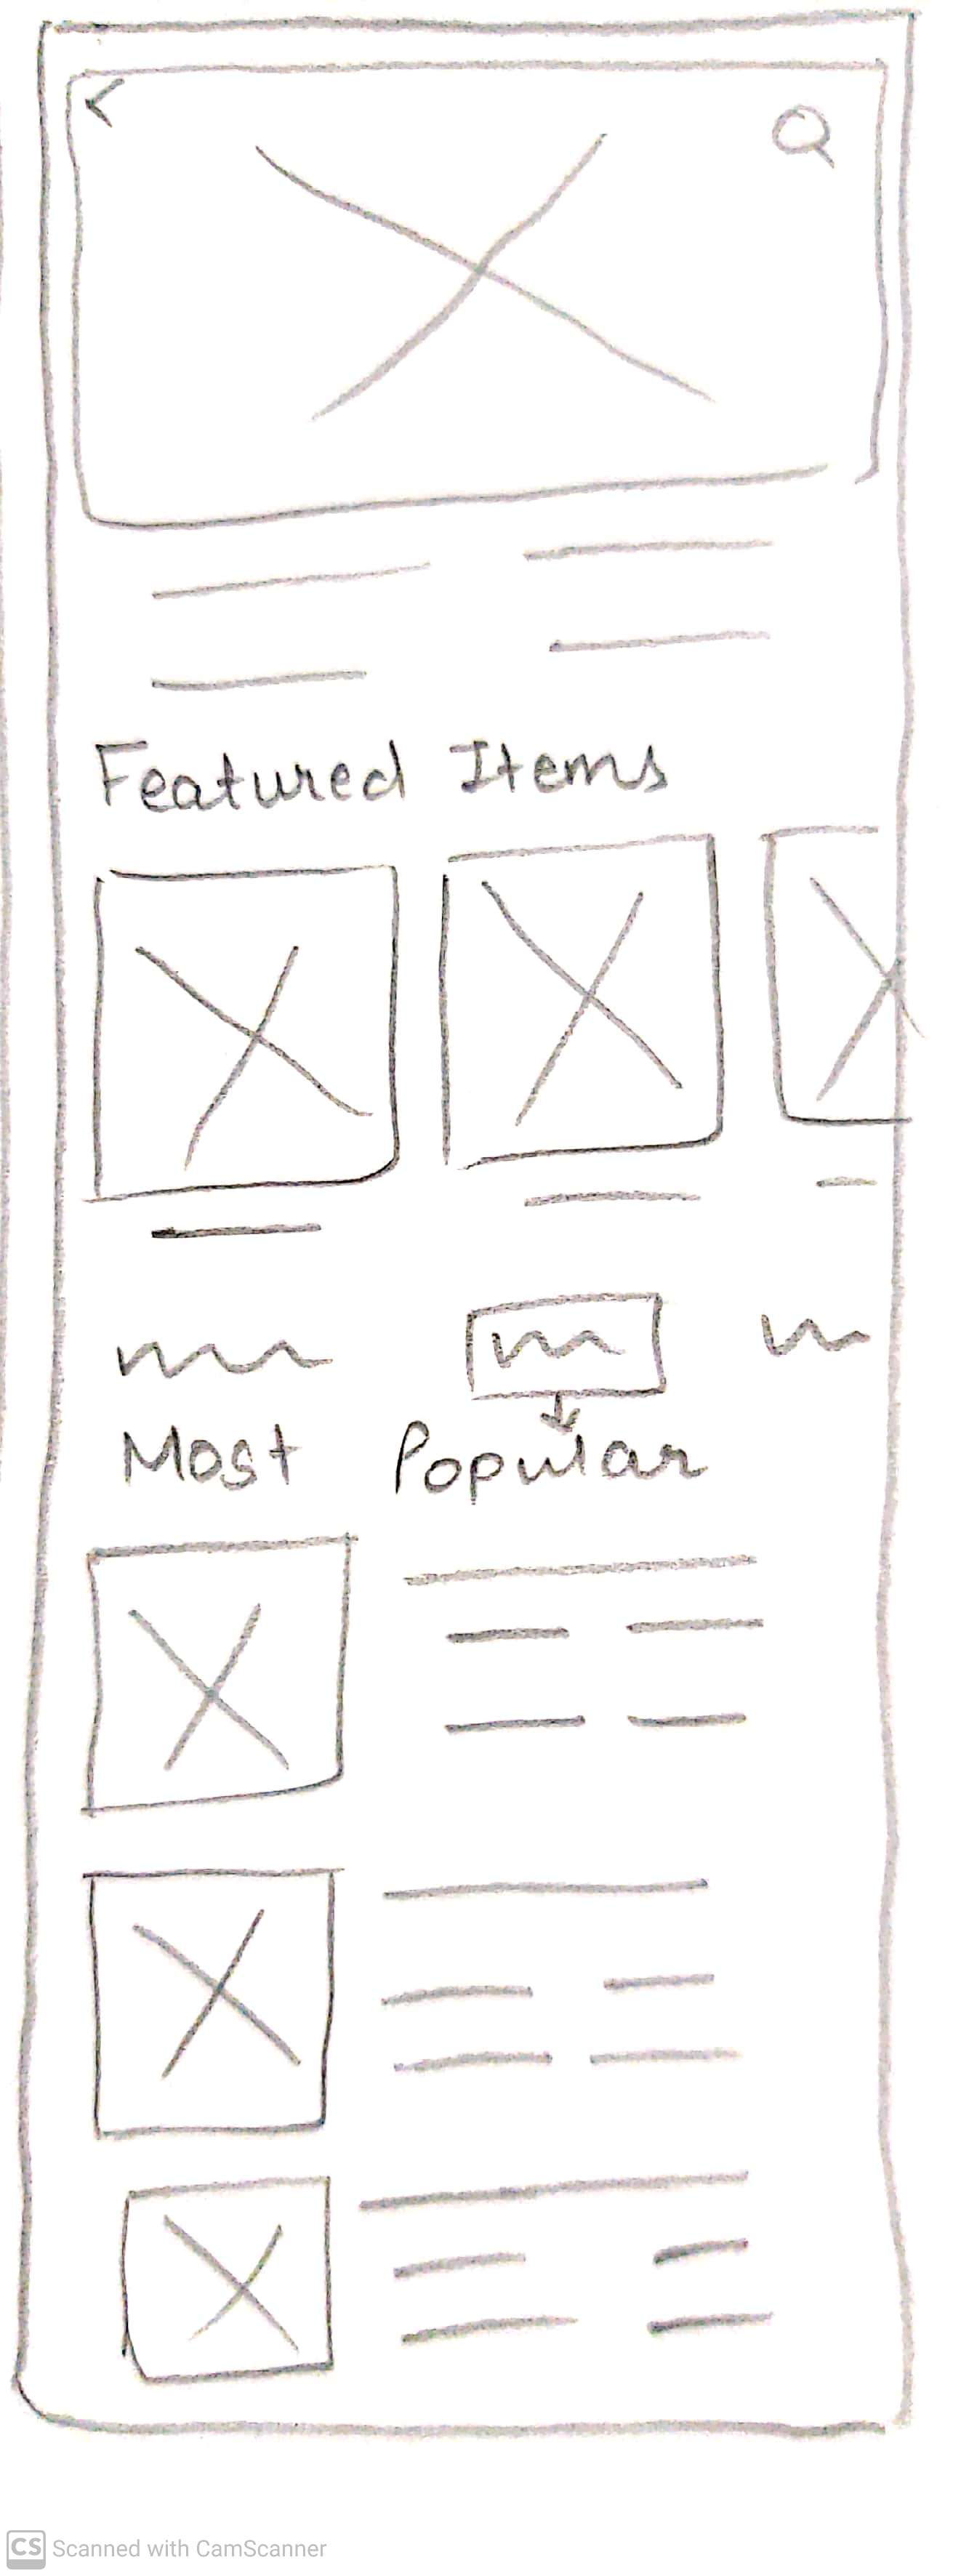 Featured Items
Most Popular
CS Scanned with CamScanner